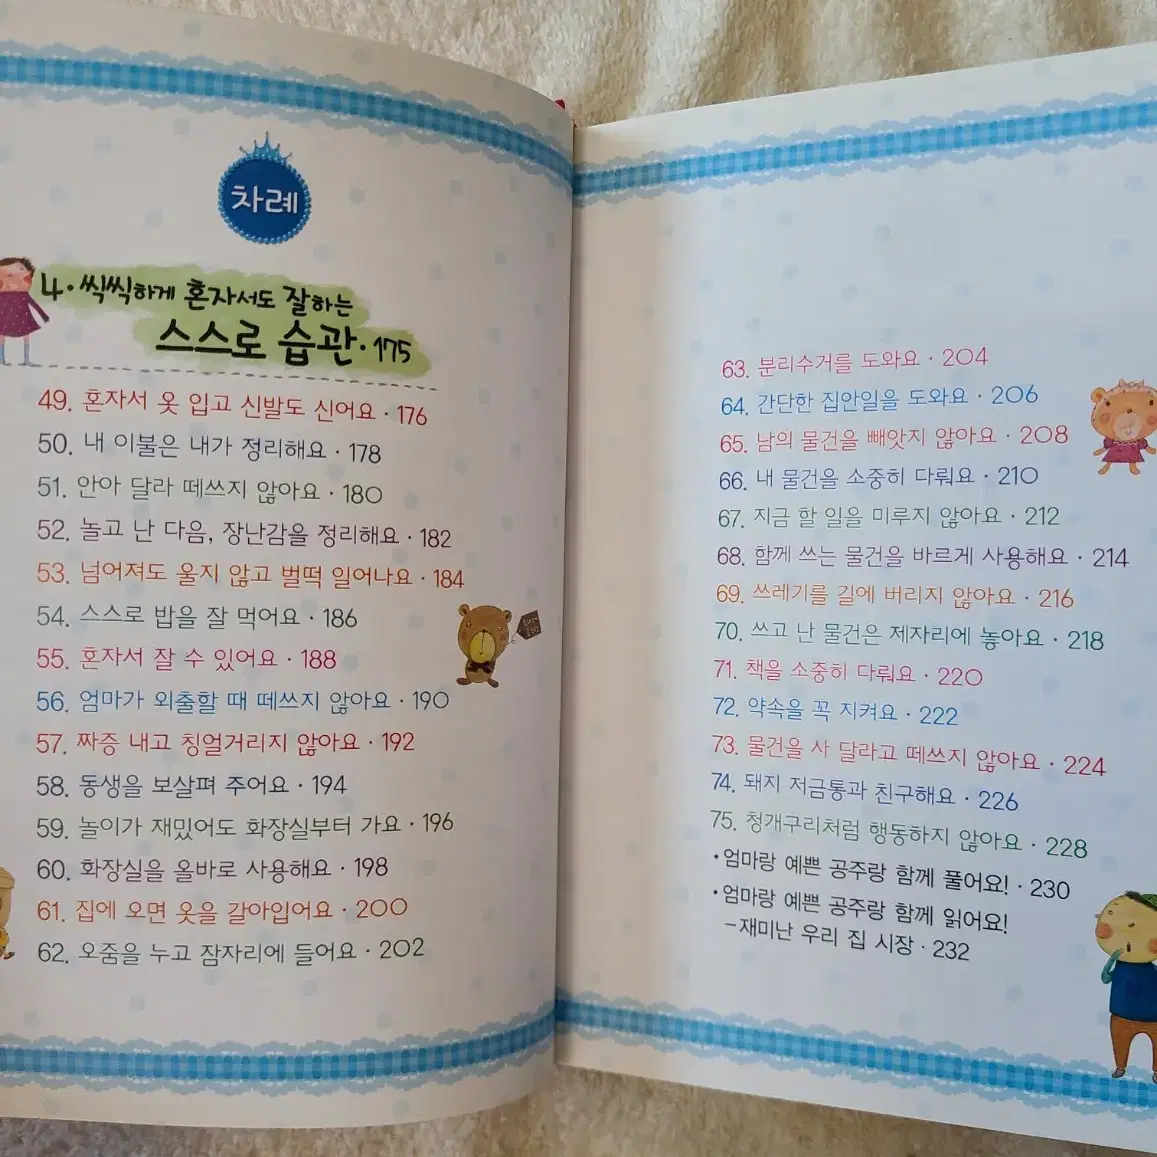 차례
4·씩씩하게 혼자서도 잘하는
스스로 습관·175
49. 혼자서 옷 입고 신발도 신어요·176
50. 내 이불은 내가 정리해요·178
51. 안아 달라 떼쓰지 않아요·180
52. 놀고 난 다음, 장난감을 정리해요·182
53. 넘어져도 울지 않고 벌떡 일어나요·184
54. 스스로 밥을 잘 먹어요·186
55. 혼자서 잘 수 있어요·188
56. 엄마가 외출할 때 떼쓰지 않아요·190
57. 짜증 내고 칭얼거리지 않아요·192
58. 동생을 보살펴 주어요·194
59. 놀이가 재밌어도 화장실부터 가요·196
60. 화장실을 올바로 사용해요·198
61. 집에 오면 옷을 갈아입어요·200
62. 오줌을 누고 잠자리에 들어요·202
63. 분리수거를 도와요·204
64. 간단한 집안일을 도와요·206
65. 남의 물건을 빼앗지 않아요·208
66. 내 물건을 소중히 다뤄요·210
67. 지금 할 일을 미루지 않아요·212
68. 함께 쓰는 물건을 바르게 사용해요·214
69. 쓰레기를 길에 버리지 않아요·216
70. 쓰고 난 물건은 제자리에 놓아요·218
71. 책을 소중히 다뤄요·220
72. 약속을 꼭 지켜요·222
73. 물건을 사 달라고 떼쓰지 않아요·224
74. 돼지 저금통과 친구해요·226
75. 청개구리처럼 행동하지 않아요·228
·엄마랑 예쁜 공주랑 함께 풀어요!·230
·엄마랑 예쁜 공주랑 함께 읽어요!
-재미난 우리 집 시장·232